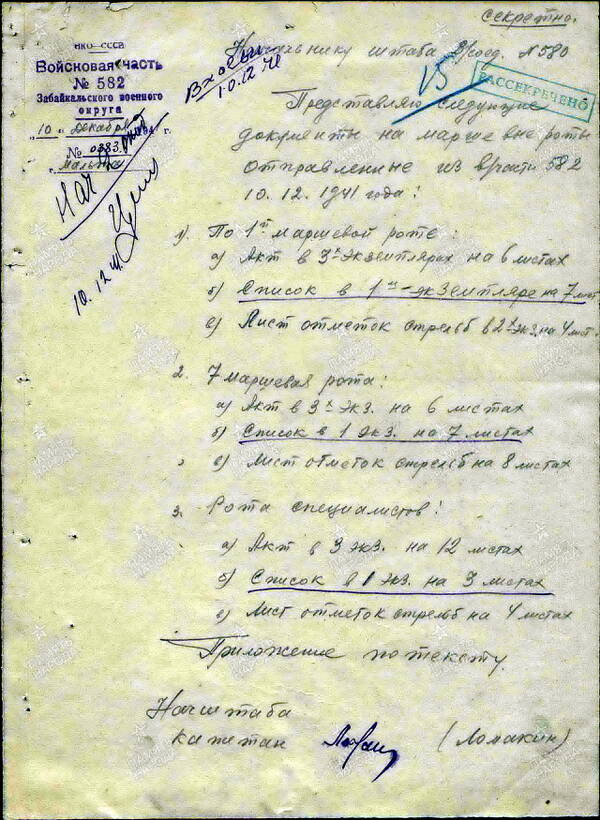 секретно.
НКО-СССР
Войсковая часть
№ 582
Забайкальского военного
округа
"10" декабря 1941 г.
№ 0383
г. Мальта
10.12.41
10.12.41
Начальнику штаба в/соед. №580
РАССЕКРЕЧЕНО
Представляю следующие
документы на маршевые роты
отправленные из в/части 582
10.12.1941 года:
1). По 1й маршевой роте:
а) Акт в 3х экземплярах на 6 листах
б) Список в 1м экземпляре на 7 лист.
в) Лист отметок стрельб в 2х экз. на 4 лист.
2. 7 маршевая рота:
а) Акт в 3х экз. на 6 листах
б) Список в 1 экз. на 7 листах
в) Лист отметок стрельб на 8 листах
3. Рота специалистов:
а) Акт в 3 экз. на 12 листах
б) Список в 1 экз. на 3 листах
в) Лист отметок стрельб на 4 листах
Приложение по тексту.
Нач штаба
капитан (Ломакин)